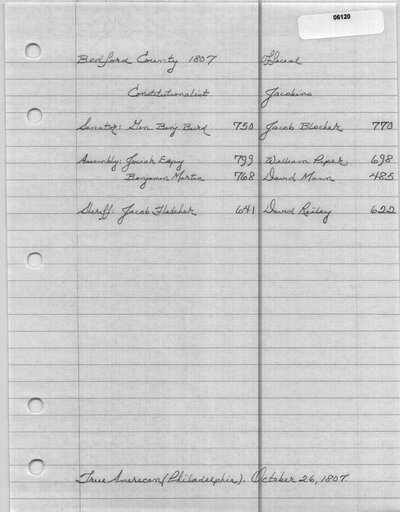 06120
Bedford County 1807 Official
Constitutionalist Jacobins
Senator: Gen. Benj. Burd 750 Jacob Blocher 770
Assembly: Josiah Espy 799 William Piper 698
Benjamin Martin 768 David Mann 485
Sheriff: Jacob Fletcher 641 David Reiley 622
True American (Philadelphia). October 26, 1807